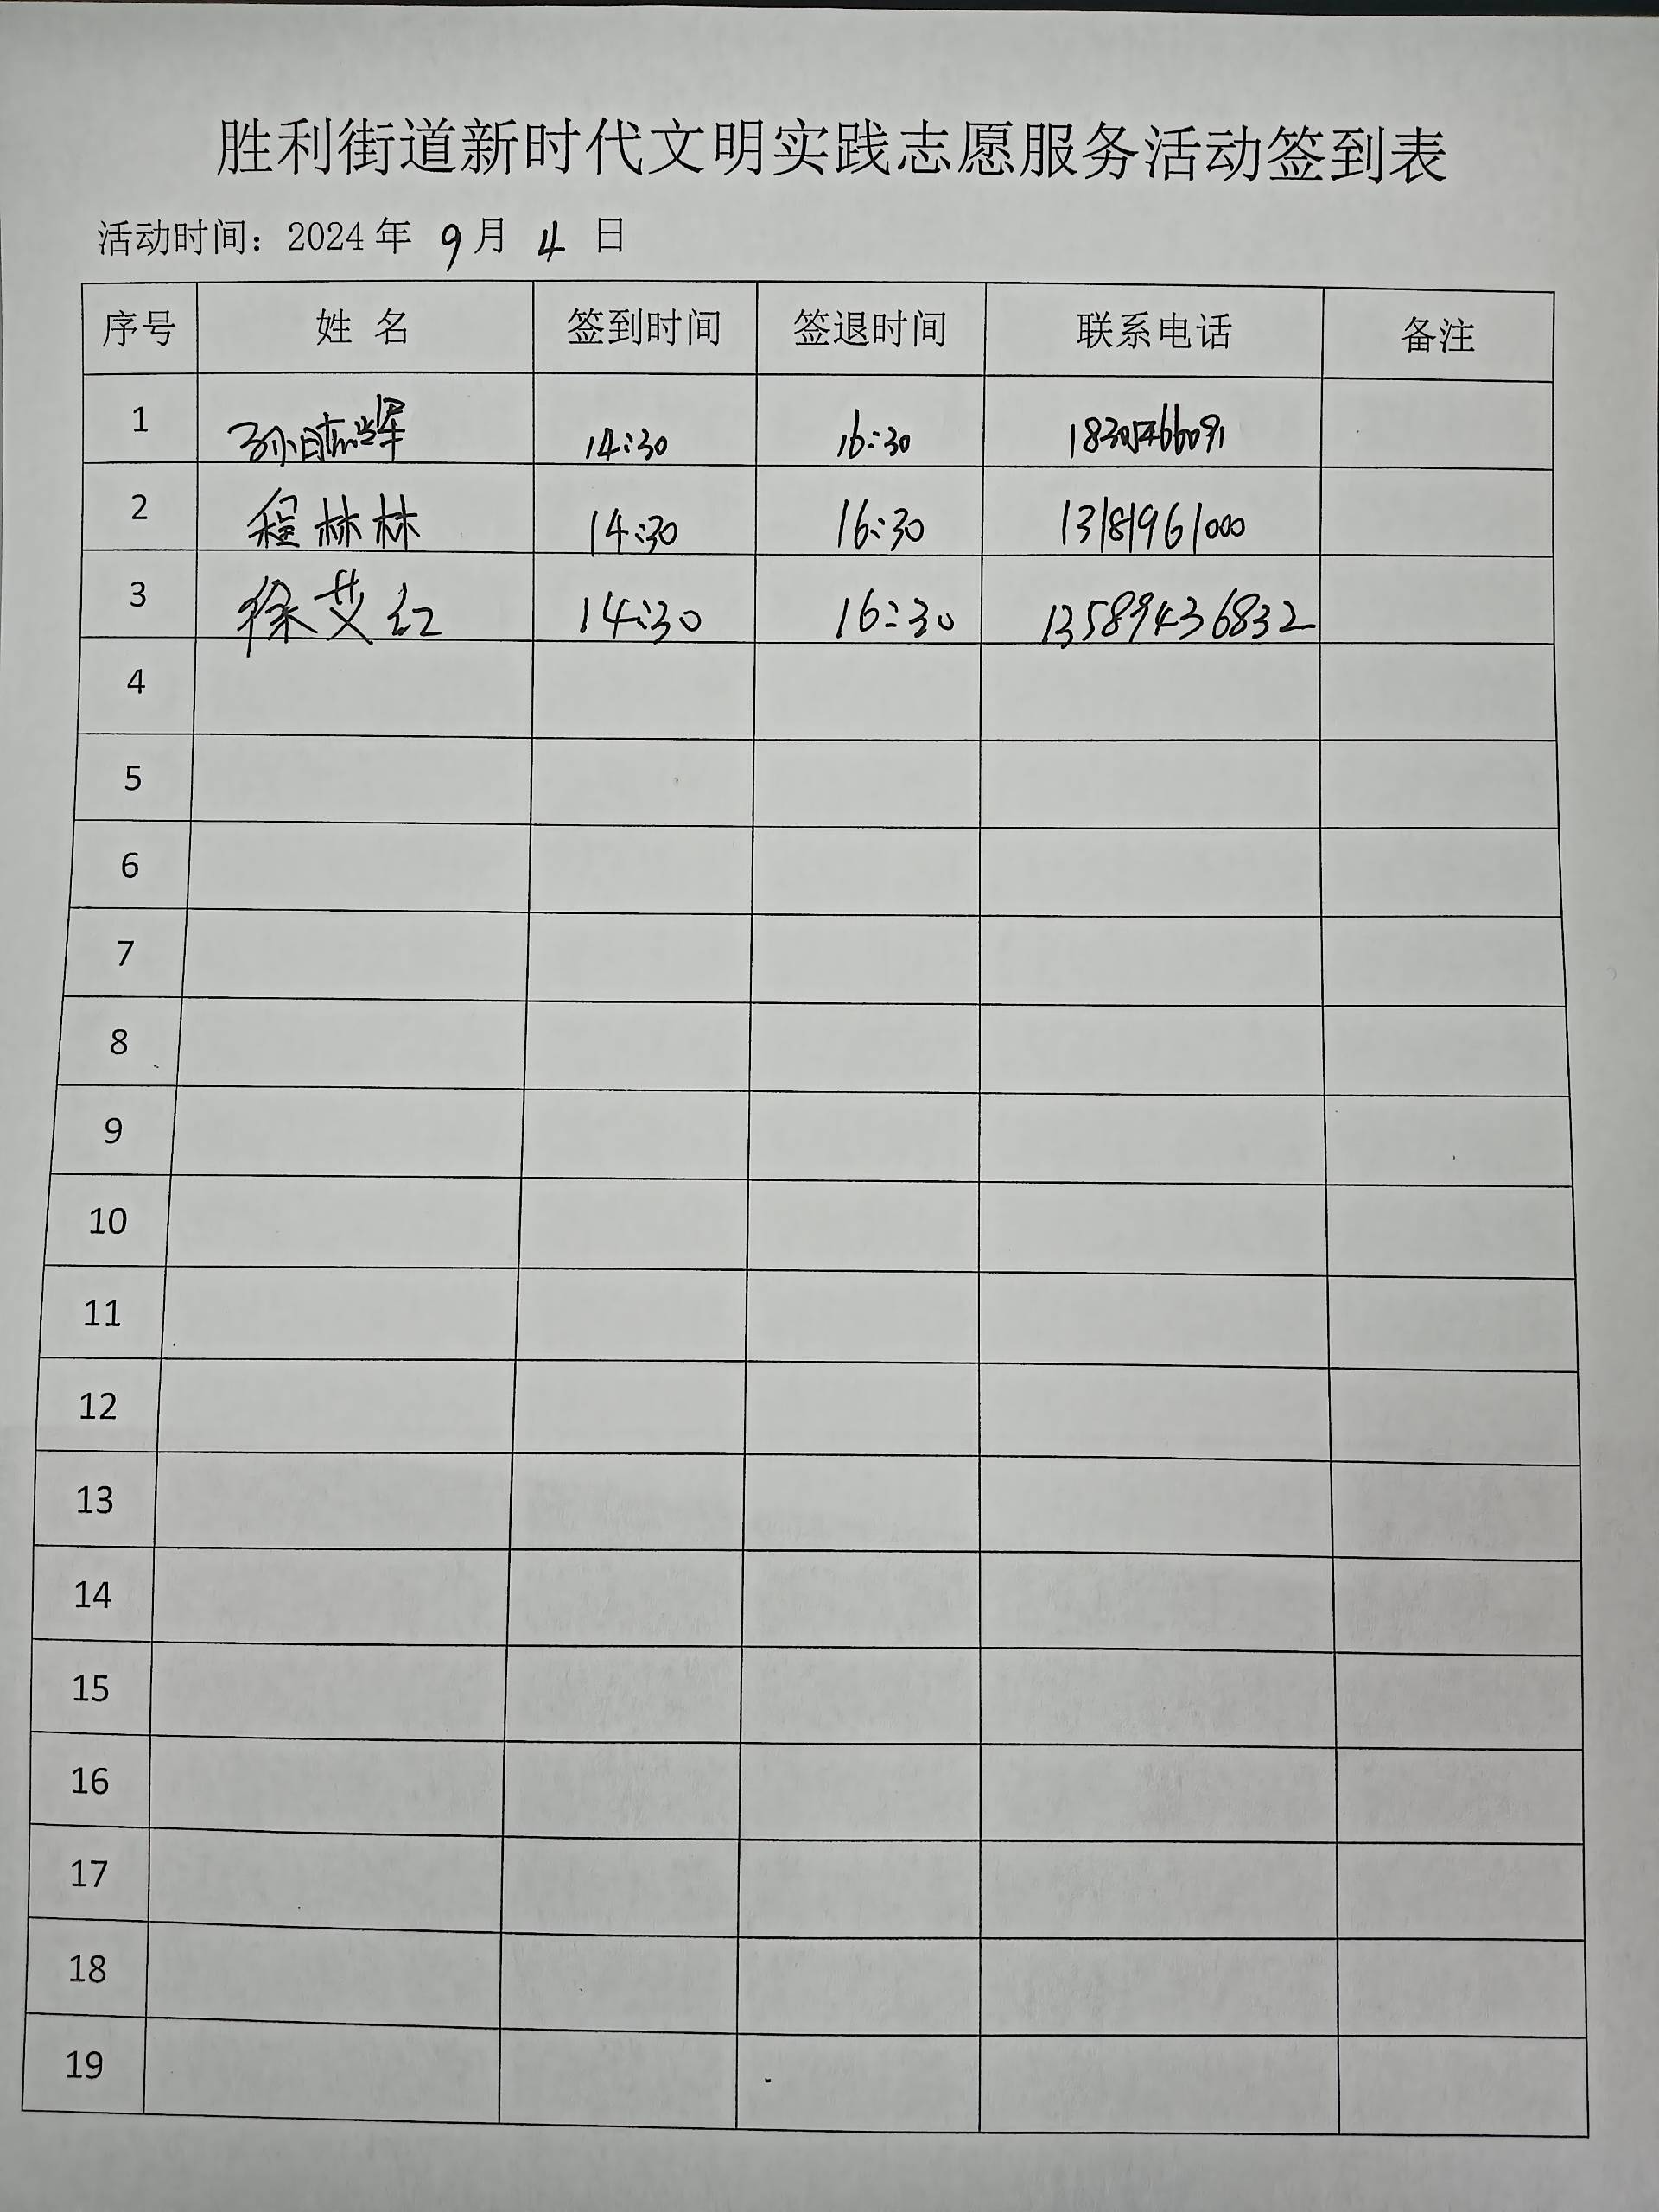 胜利街道新时代文明实践志愿服务活动签到表
活动时间：2024 年 9 月 4 日
序号 姓 名 签到时间 签退时间 联系电话 备注
1 孙晓辉 14:30 16:30
2 程林林 14:30 16:30 13181961000
3 徐艾红 14:30 16:30 13589436832
4
5
6
7
8
9
10
11
12
13
14
15
16
17
18
19